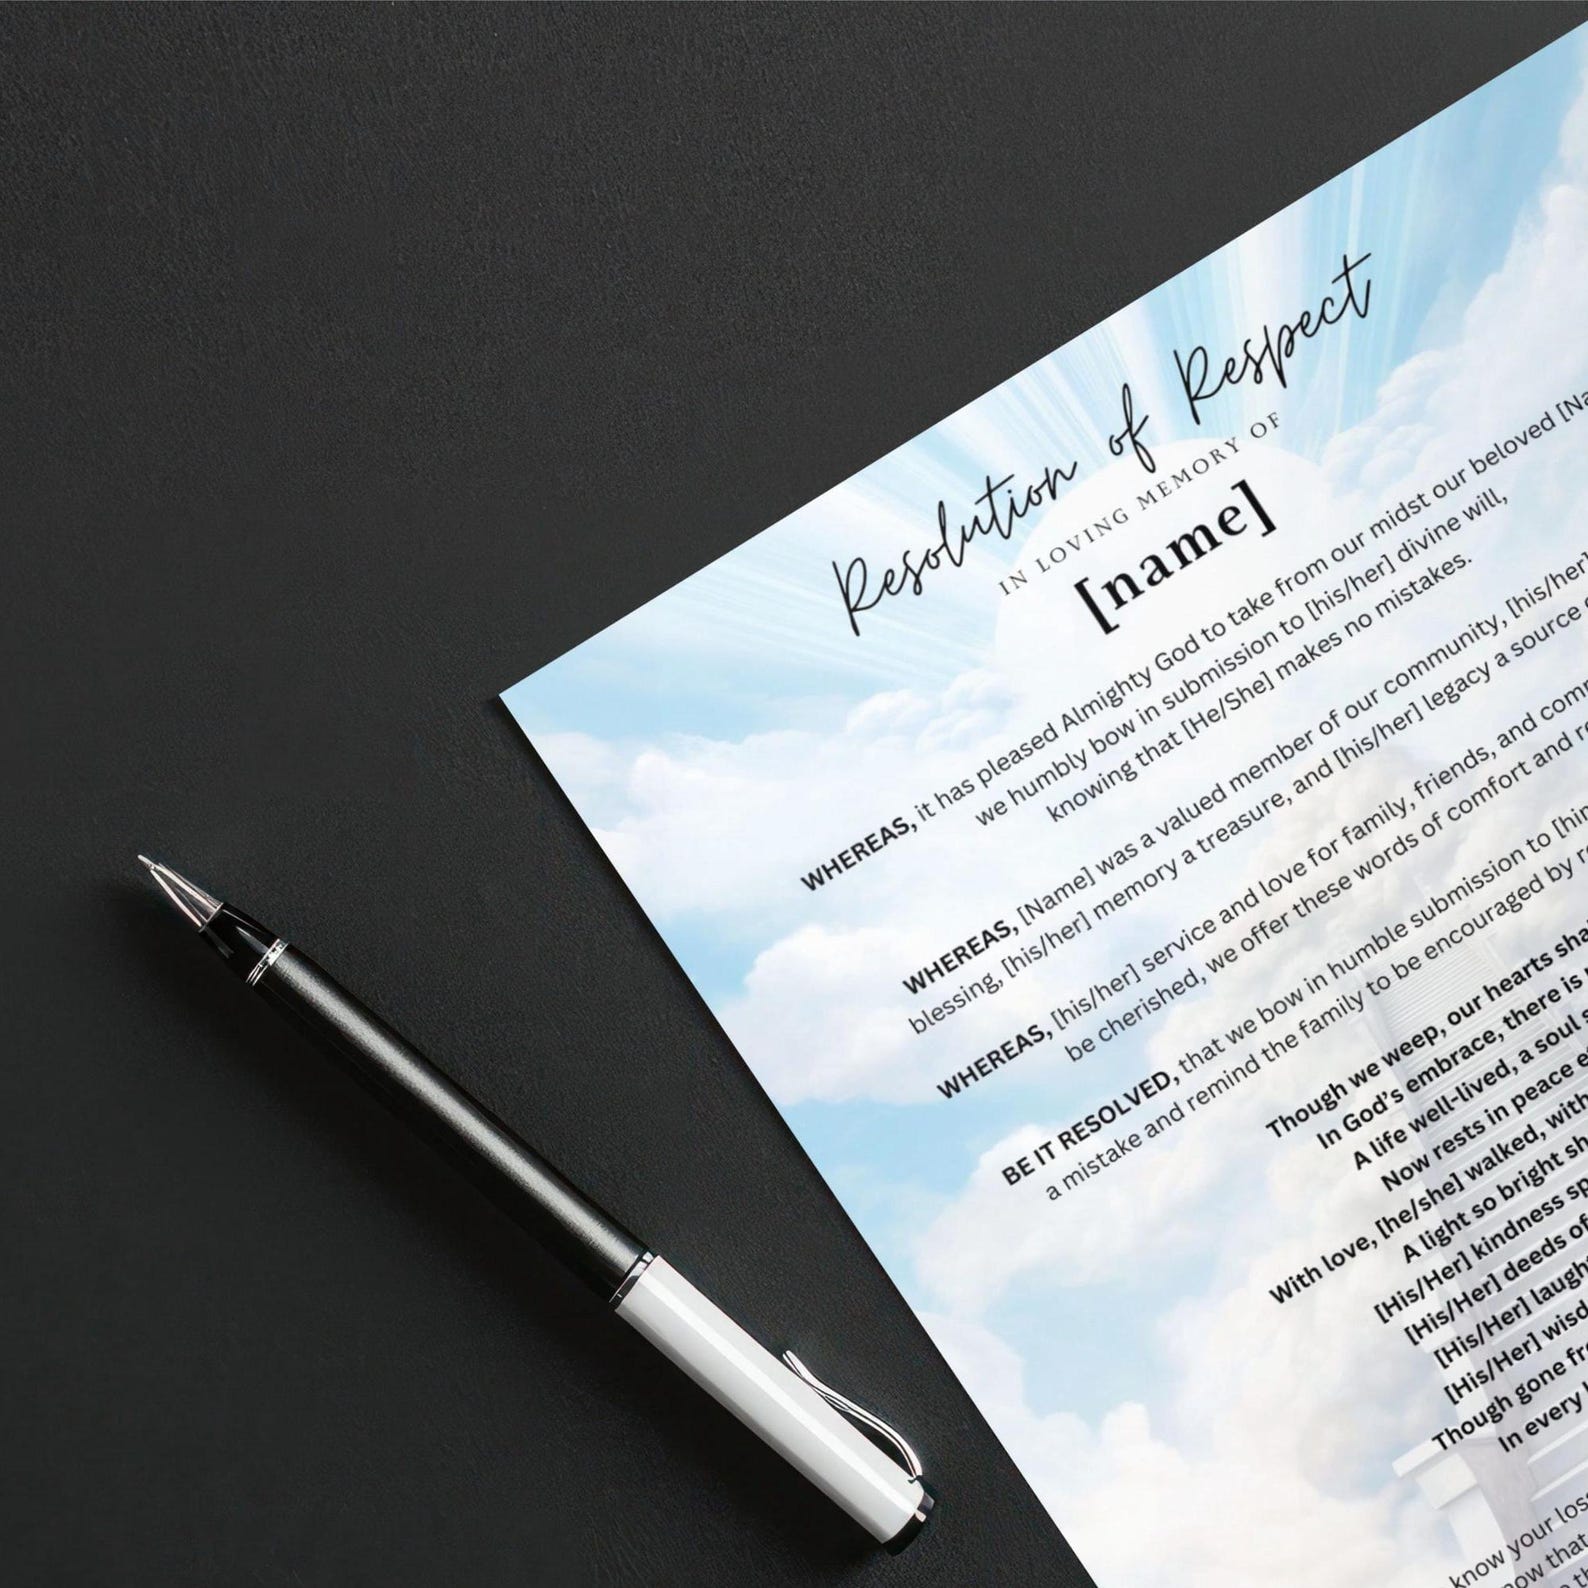 Resolution of Respect
IN LOVING MEMORY OF
[name]
WHEREAS, it has pleased Almighty God to take from our midst our beloved
we humbly bow in submission to [his/her] divine will,
knowing that [He/She] makes no mistakes.
WHEREAS, [Name] was a valued member of our community, [his/her]
blessing, [his/her] memory a treasure, and [his/her] legacy a source
WHEREAS, [his/her] service and love for family, friends, and
be cherished, we offer these words of comfort and
BE IT RESOLVED, that we bow in humble submission to
a mistake and remind the family to be encouraged by
Though we weep, our hearts
In God's embrace, there is
A life well-lived, a soul
Now rests in peace
With love, [he/she] walked, with
A light so bright
[His/Her] kindness
[His/Her] deeds of
[His/Her]
[His/Her]
Though gone
In every
know your
that